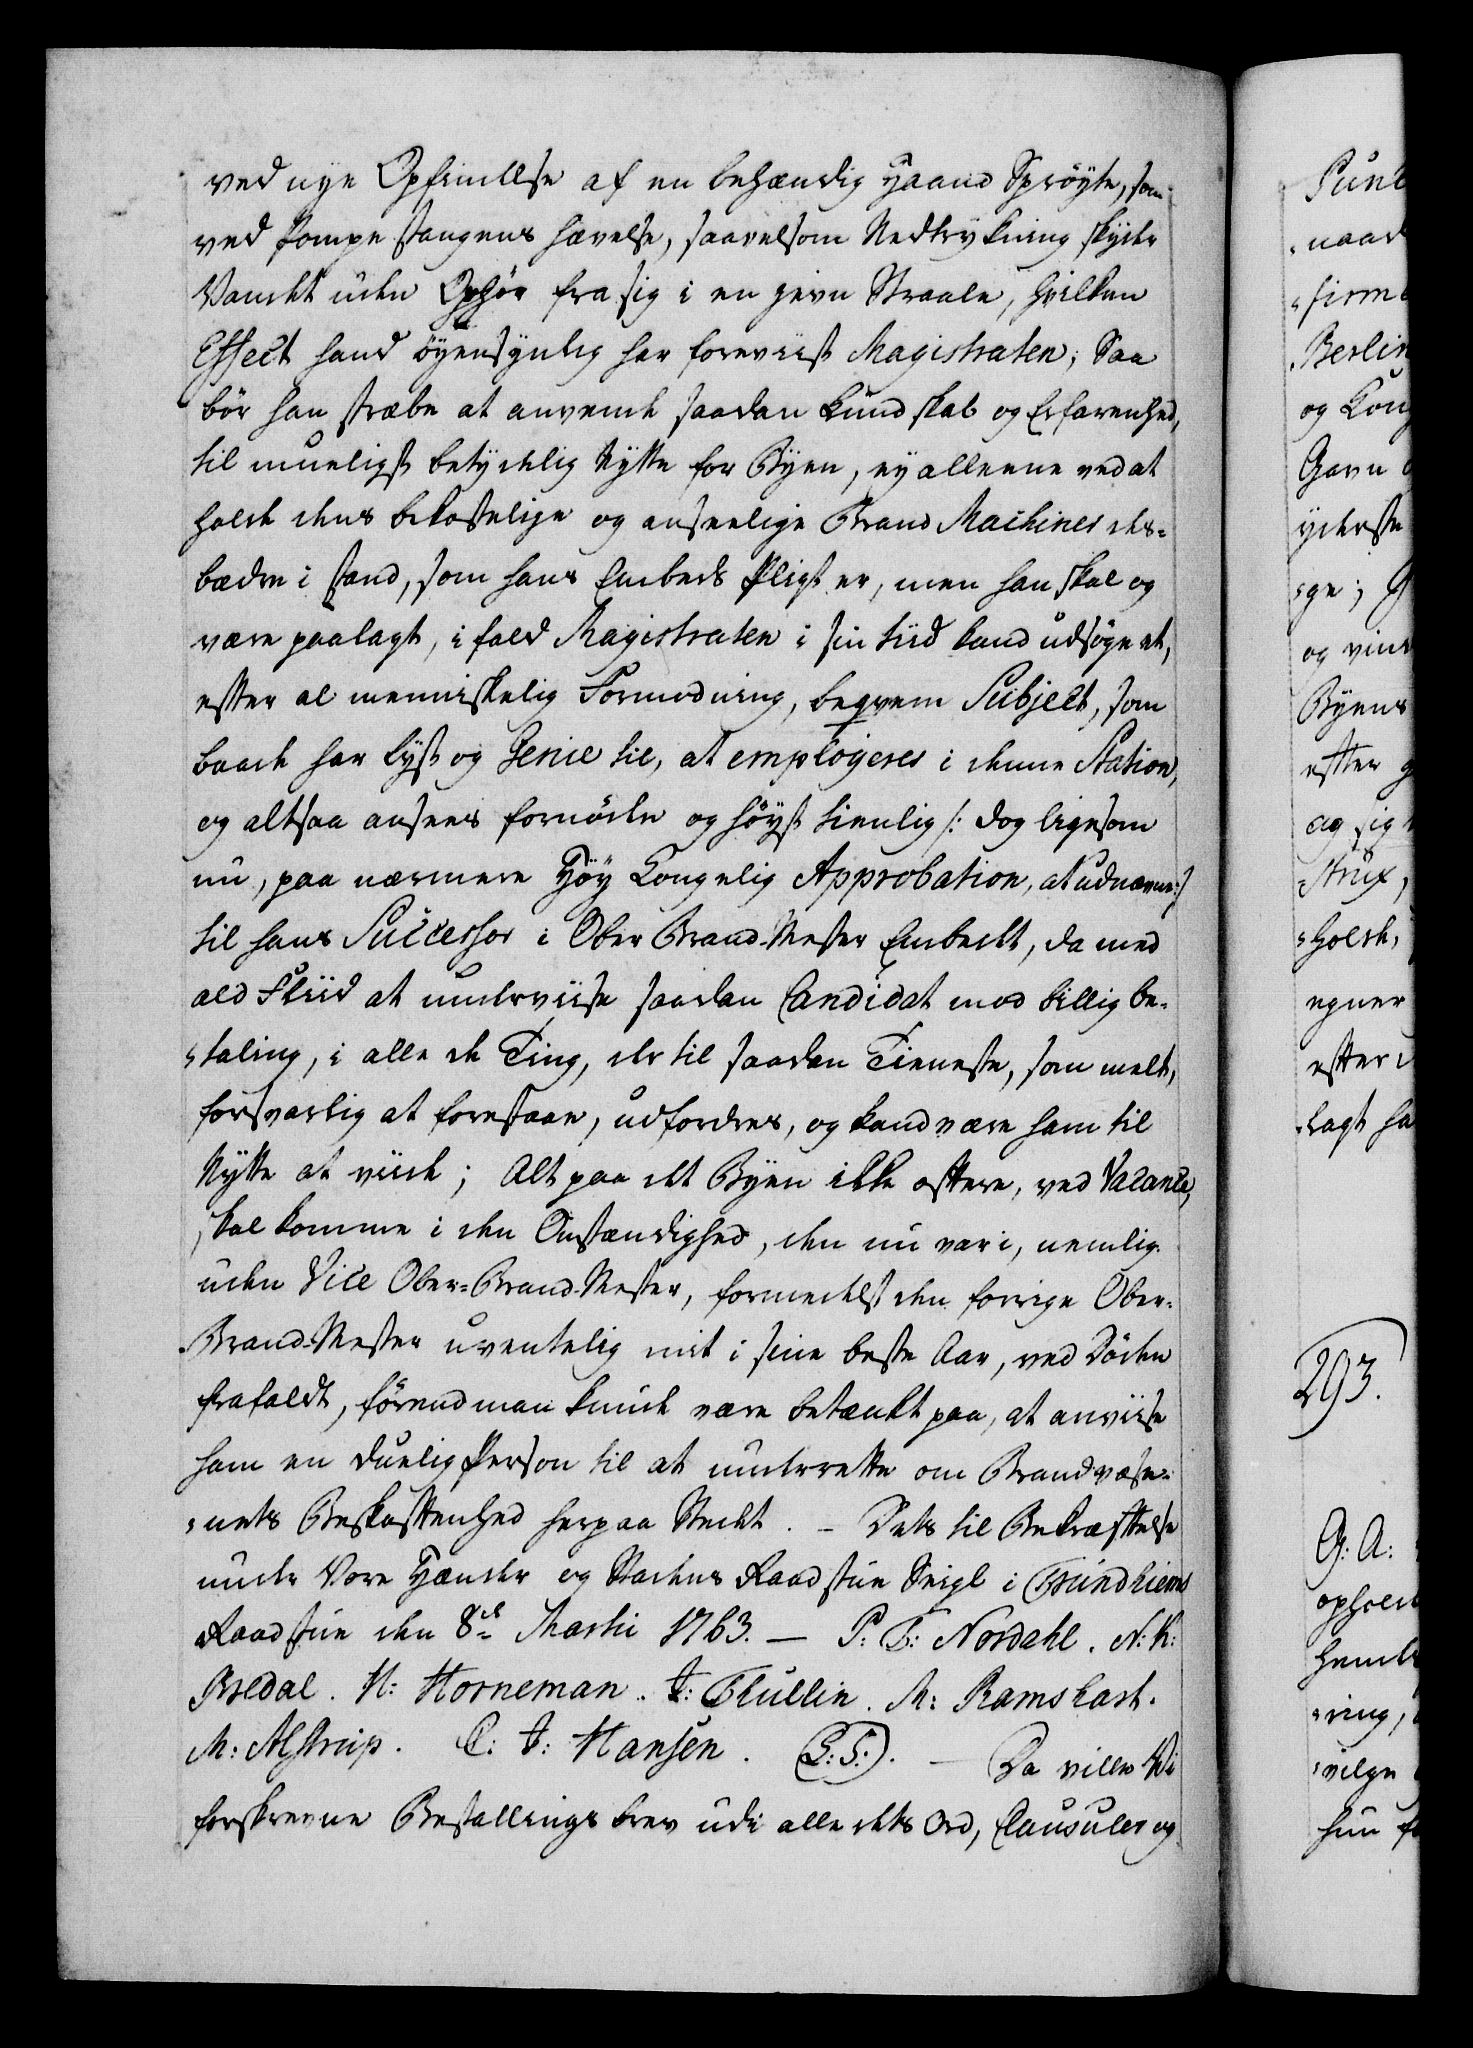 ved nye Opfindelse af en behændig Haand Sprøyte, som
ved Pompe stangens hævelse, saavelsom Nedtrykning skyder
Vandet uden Ophør fra sig i en jevn Straale, hvilken
Effect hand øyensynlig har foreviist Magistraten; Saa
bør han stræbe at anvende saadan Kundskab og Erfarenhed,
til mueligst betydelig Nytte for Byen, ey alleene ved at
holde dens bekostelige og anseelige Brand Machines des-
bædre i stand, som hans Embeds Pligt er, men han skal og
være paalagt, i fald Magistraten i sin tiid kand udsøge et,
efter al menniskelig Formodning, beqvem Subject, som
baade har Lyst og Genie til, at employeres i denne Station,
og altsaa ansees fornøden og høyst tienlig /: dog ligesom
nu, paa nærmere Høy Kongelig Approbation, at udnævne :/
til hans Successor i Ober Brand-Mester Embedet, da med
ald Fliid at underviise saadan Candidat mod billig be-
taling, i alle de Ting, der til saadan Tieneste, som meldt,
forsvarlig at forestaae, udfordres, og kand være ham til
Nytte at viide; Alt paa det Byen ikke oftere, ved Vacance,
skal komme i den Omstændighed, den nu var i, nemlig
uden Vice Ober-Brand-Mester, formedelst den forrige Ober-
Brand-Mester uventelig mit i sine beste Aar, ved Døden
frafaldt, førend man kunde være betænkt paa, at anviise
ham en duelig Person til at underrette om Brandvæse-
nets Beskaffenhed her paa Stedet. - Dets til Bekræftelse
under Vore Hænder og Stadens Raadstue Seigl i Trundhiems
Raadstue den 8de Martii 1763. — P: T: Nordahl. N: K:
Bredal. H: Horneman. J: Tullin. M: Ramshart.
M: Alstrup. C: J: Hansen. (L: S:). — Da ville Vi
forskrevne Bestallings brev udi alle dets Ord, Clausuler og
293.